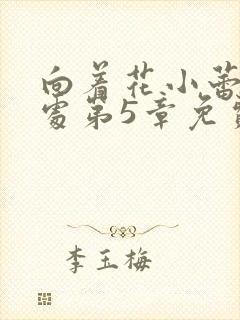 向着花小蕾
处第5章免费
李玉梅